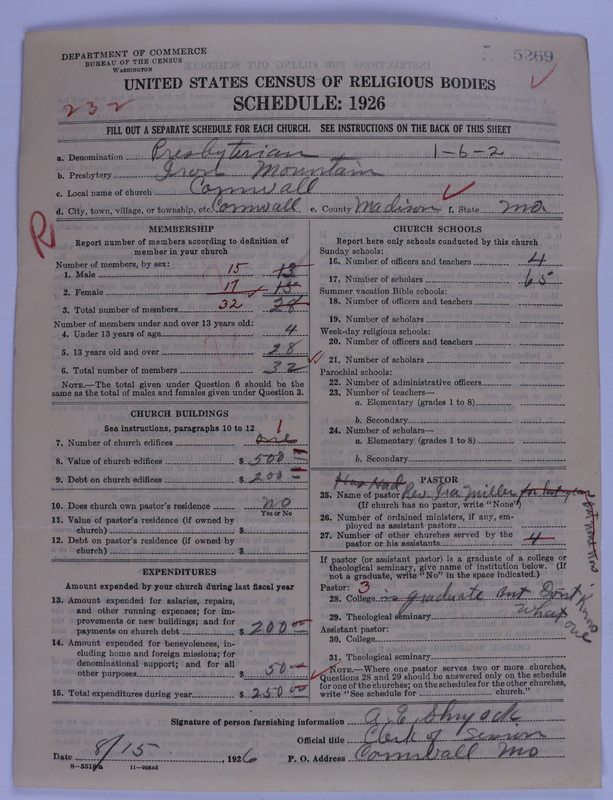 DEPARTMENT OF COMMERCE
BUREAU OF THE CENSUS
WASHINGTON
5269
UNITED STATES CENSUS OF RELIGIOUS BODIES
SCHEDULE: 1926
232
FILL OUT A SEPARATE SCHEDULE FOR EACH CHURCH. SEE INSTRUCTIONS ON THE BACK OF THIS SHEET
a. Denomination Presbyterian 1-6-2
b. Presbytery Iron Mountain
c. Local name of church Cornwall
d. City, town, village, or township, etc. Cornwall e. County Madison f. State Mo
R
MEMBERSHIP
Report number of members according to definition of
member in your church
Number of members, by sex:
1. Male 15 13
2. Female 17 15
3. Total number of members 32 28
Number of members under and over 13 years old:
4. Under 13 years of age 4
5. 13 years old and over 28
6. Total number of members 32
NOTE.—The total given under Question 6 should be the
same as the total of males and females given under Question 3.
CHURCH BUILDINGS
See instructions, paragraphs 10 to 12
7. Number of church edifices 1 one
8. Value of church edifices $ 500
9. Debt on church edifices $ 200
10. Does church own pastor's residence no
Yes or No
11. Value of pastor's residence (if owned by
church) $
12. Debt on pastor's residence (if owned by
church) $
EXPENDITURES
Amount expended by your church during last fiscal year
13. Amount expended for salaries, repairs,
and other running expenses; for im-
provements or new buildings; and for
payments on church debt $ 200 00
14. Amount expended for benevolences, in-
cluding home and foreign missions; for
denominational support; and for all
other purposes $ 50 00
15. Total expenditures during year $ 250 00
CHURCH SCHOOLS
Report here only schools conducted by this church
Sunday schools:
16. Number of officers and teachers 4
17. Number of scholars 65
Summer vacation Bible schools:
18. Number of officers and teachers
19. Number of scholars
Week-day religious schools:
20. Number of officers and teachers
21. Number of scholars
Parochial schools:
22. Number of administrative officers
23. Number of teachers—
a. Elementary (grades 1 to 8)
b. Secondary
24. Number of scholars—
a. Elementary (grades 1 to 8)
b. Secondary
Has Had PASTOR
25. Name of pastor Rev. Ira Miller for last year
(If church has no pastor, write "None")
26. Number of ordained ministers, if any, em-
ployed as assistant pastors
27. Number of other churches served by the
pastor or his assistants 4
If pastor (or assistant pastor) is a graduate of a college or
theological seminary, give name of institution below. (If
not a graduate, write "No" in the space indicated.)
Pastor: 3
28. College is graduate but Dont Know
what one
29. Theological seminary
Assistant pastor:
30. College
31. Theological seminary
NOTE.—Where one pastor serves two or more churches,
Questions 28 and 29 should be answered only on the schedule
for one of the churches; on the schedules for the other churches,
write "See schedule for church."
Signature of person furnishing information A. E. Shryock
Official title Clerk of Session
Date 8/15, 1926 P. O. Address Cornwall Mo
8—5518a 11—9064d